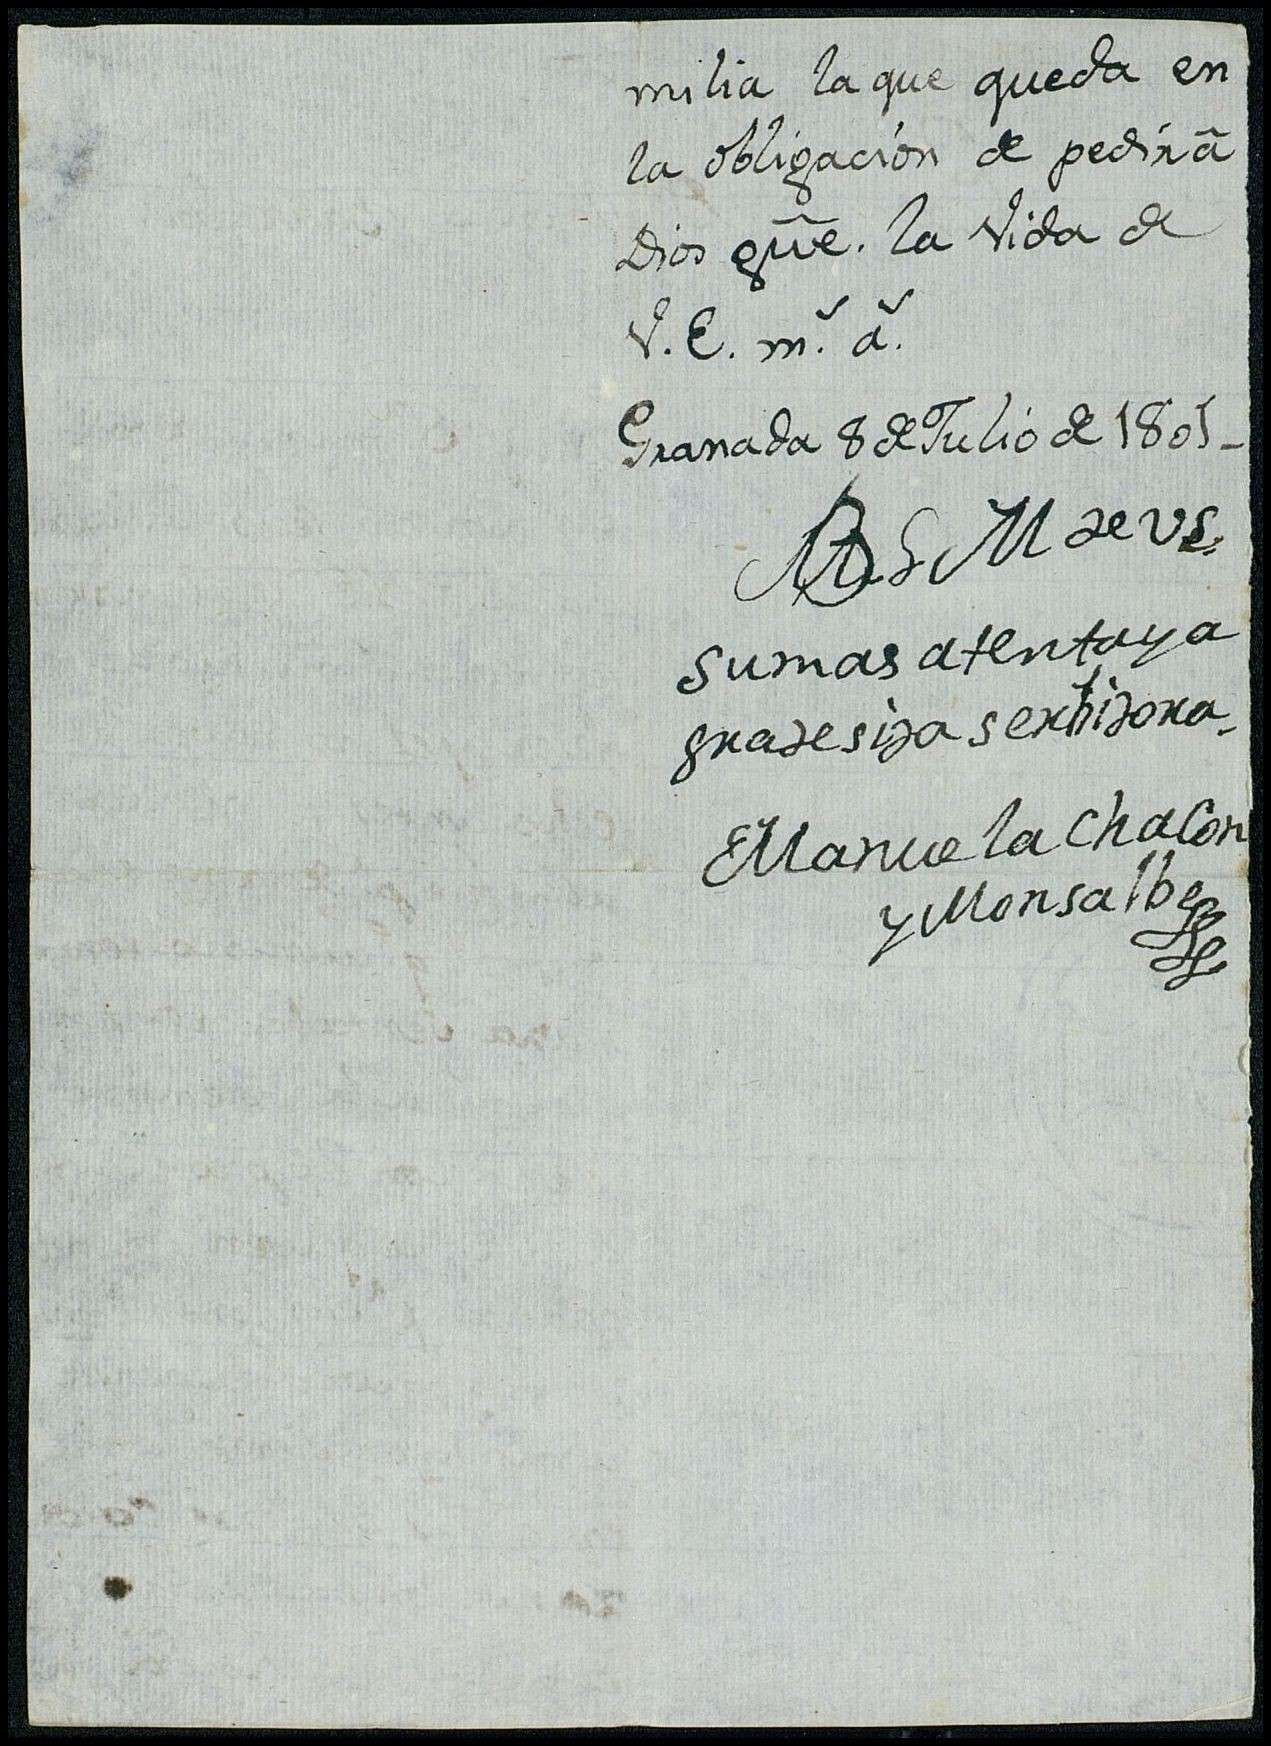 milia la que queda en
la obligación de pedir â
Dios gũe. la Vida de
V.E. mˢ. aˢ.
Granada 8 de Julio de 1801_
B L M de vs
su mas atenta y a
gradesida serbidora_
Manuela Chacon
y Monsalbe